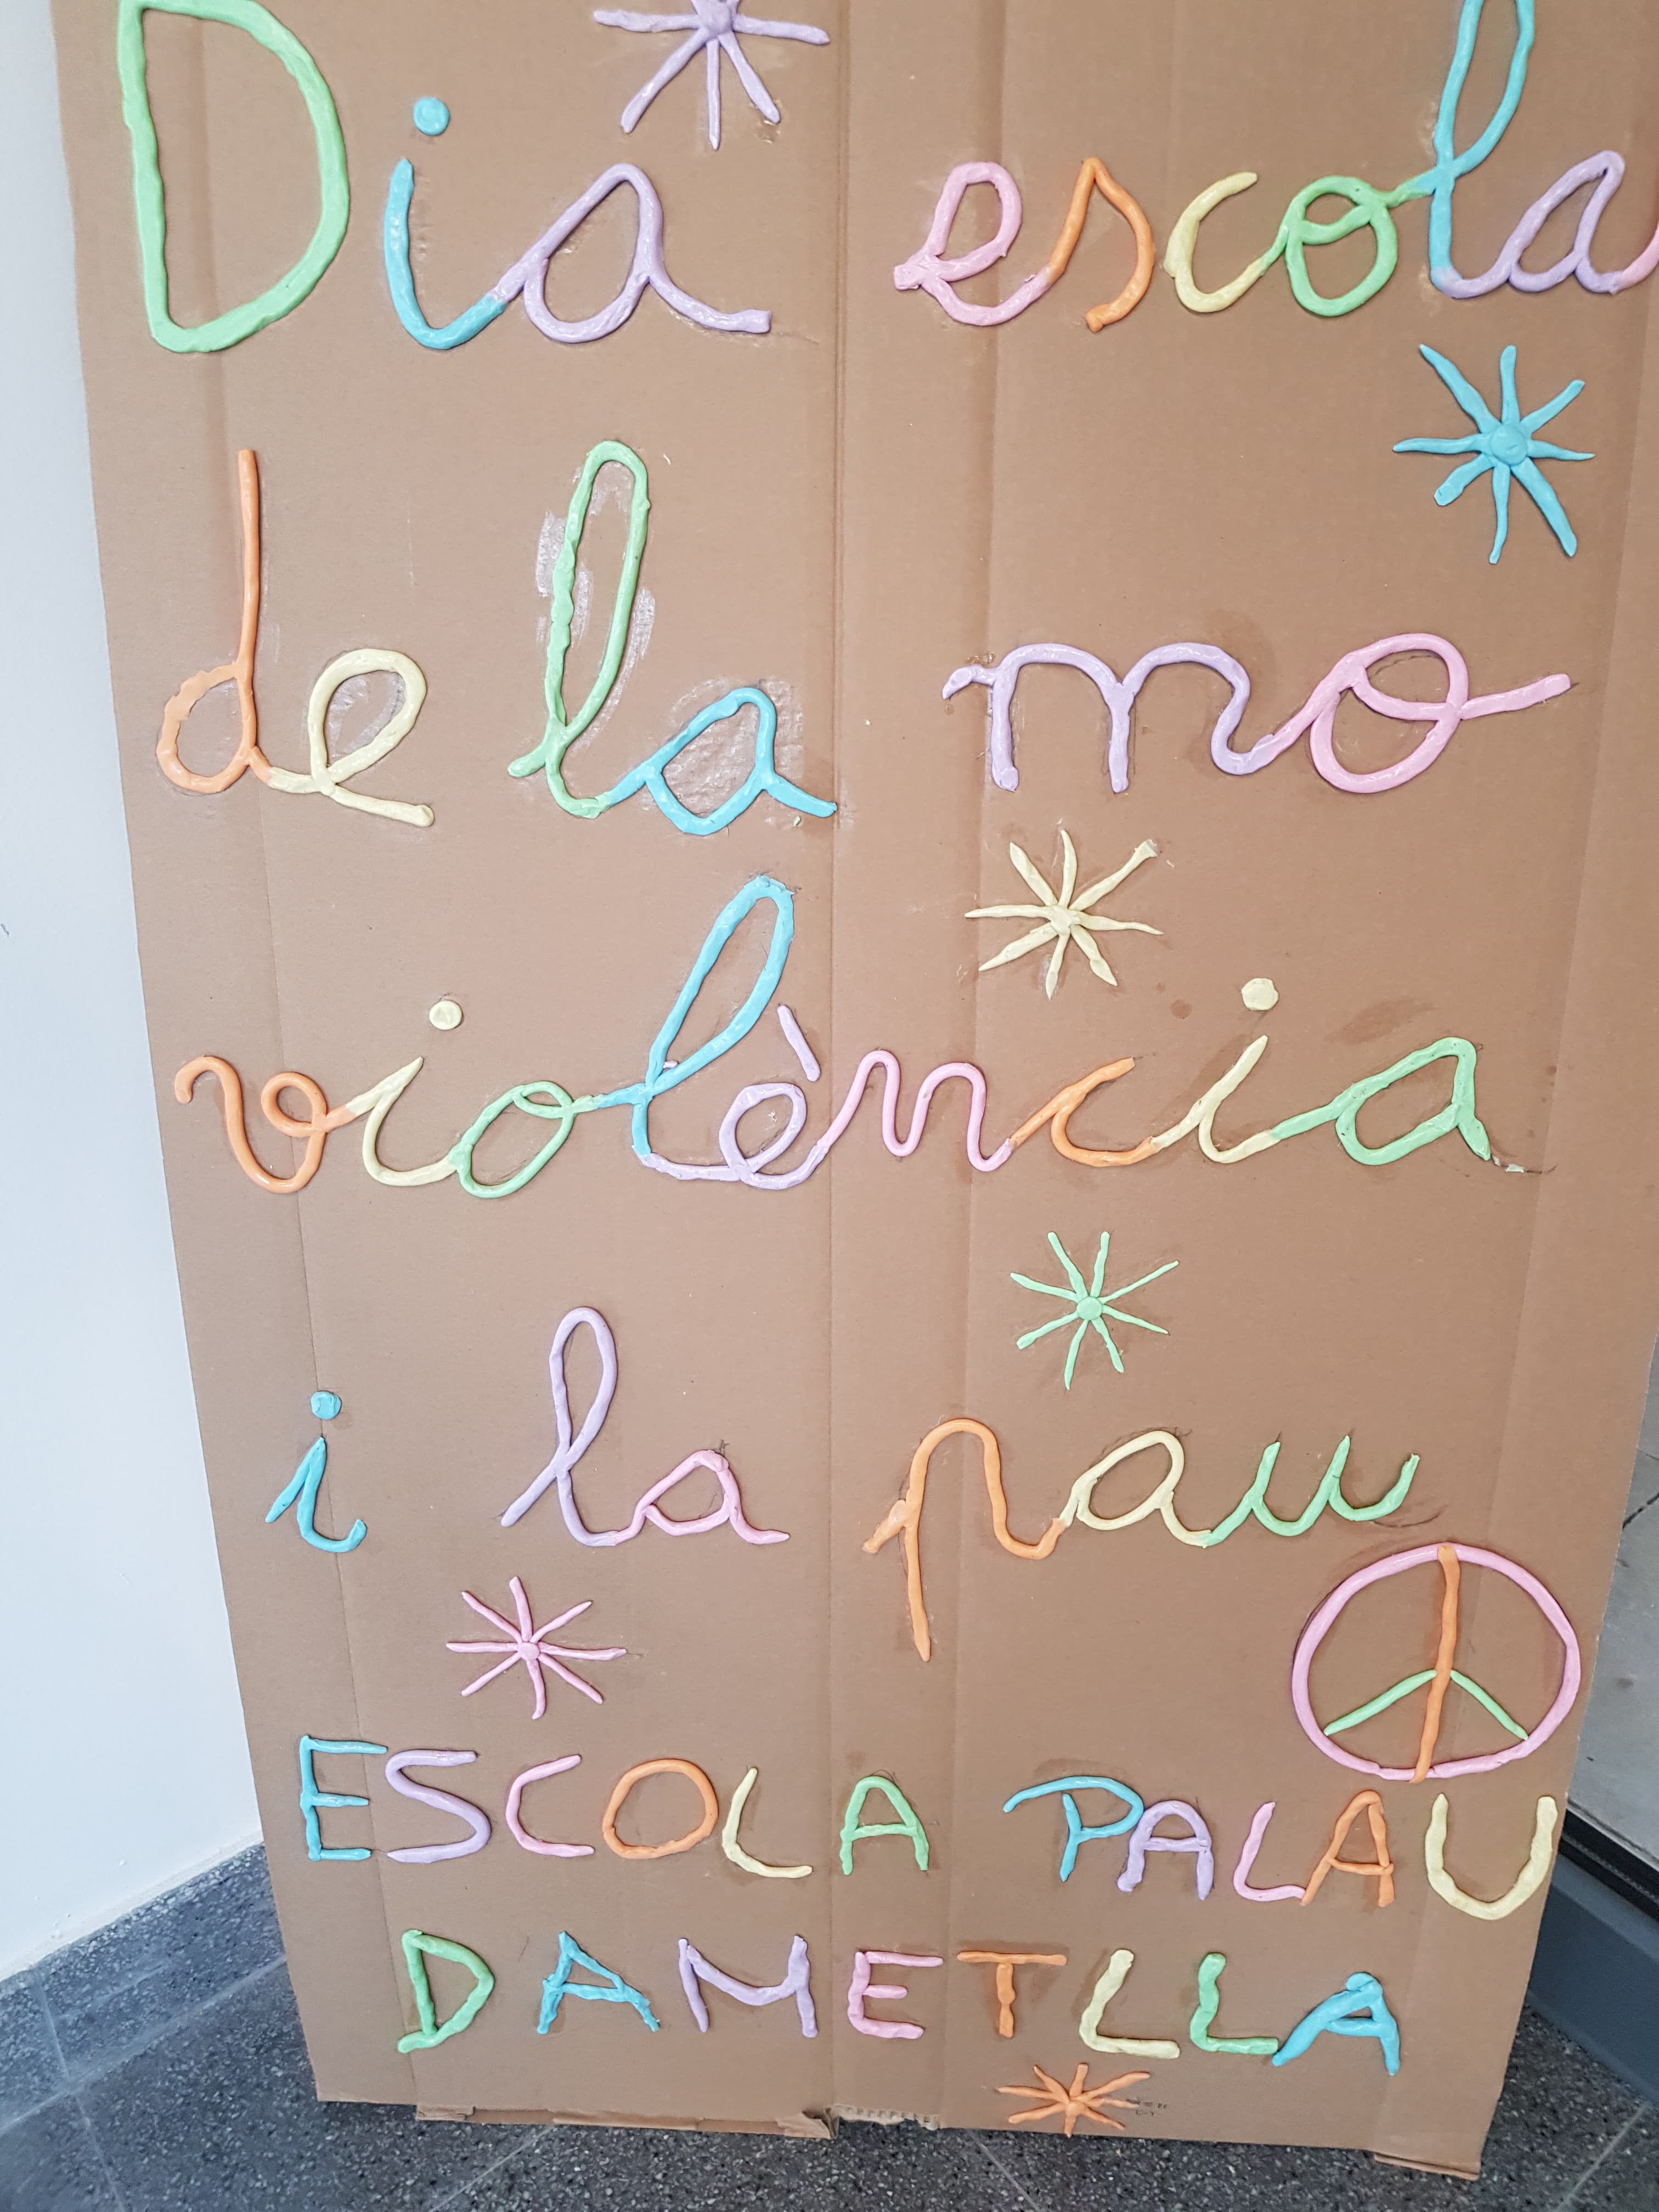 Dia escola
de la mo
violència
i la pau
ESCOLA PALAU
DAMETLLA